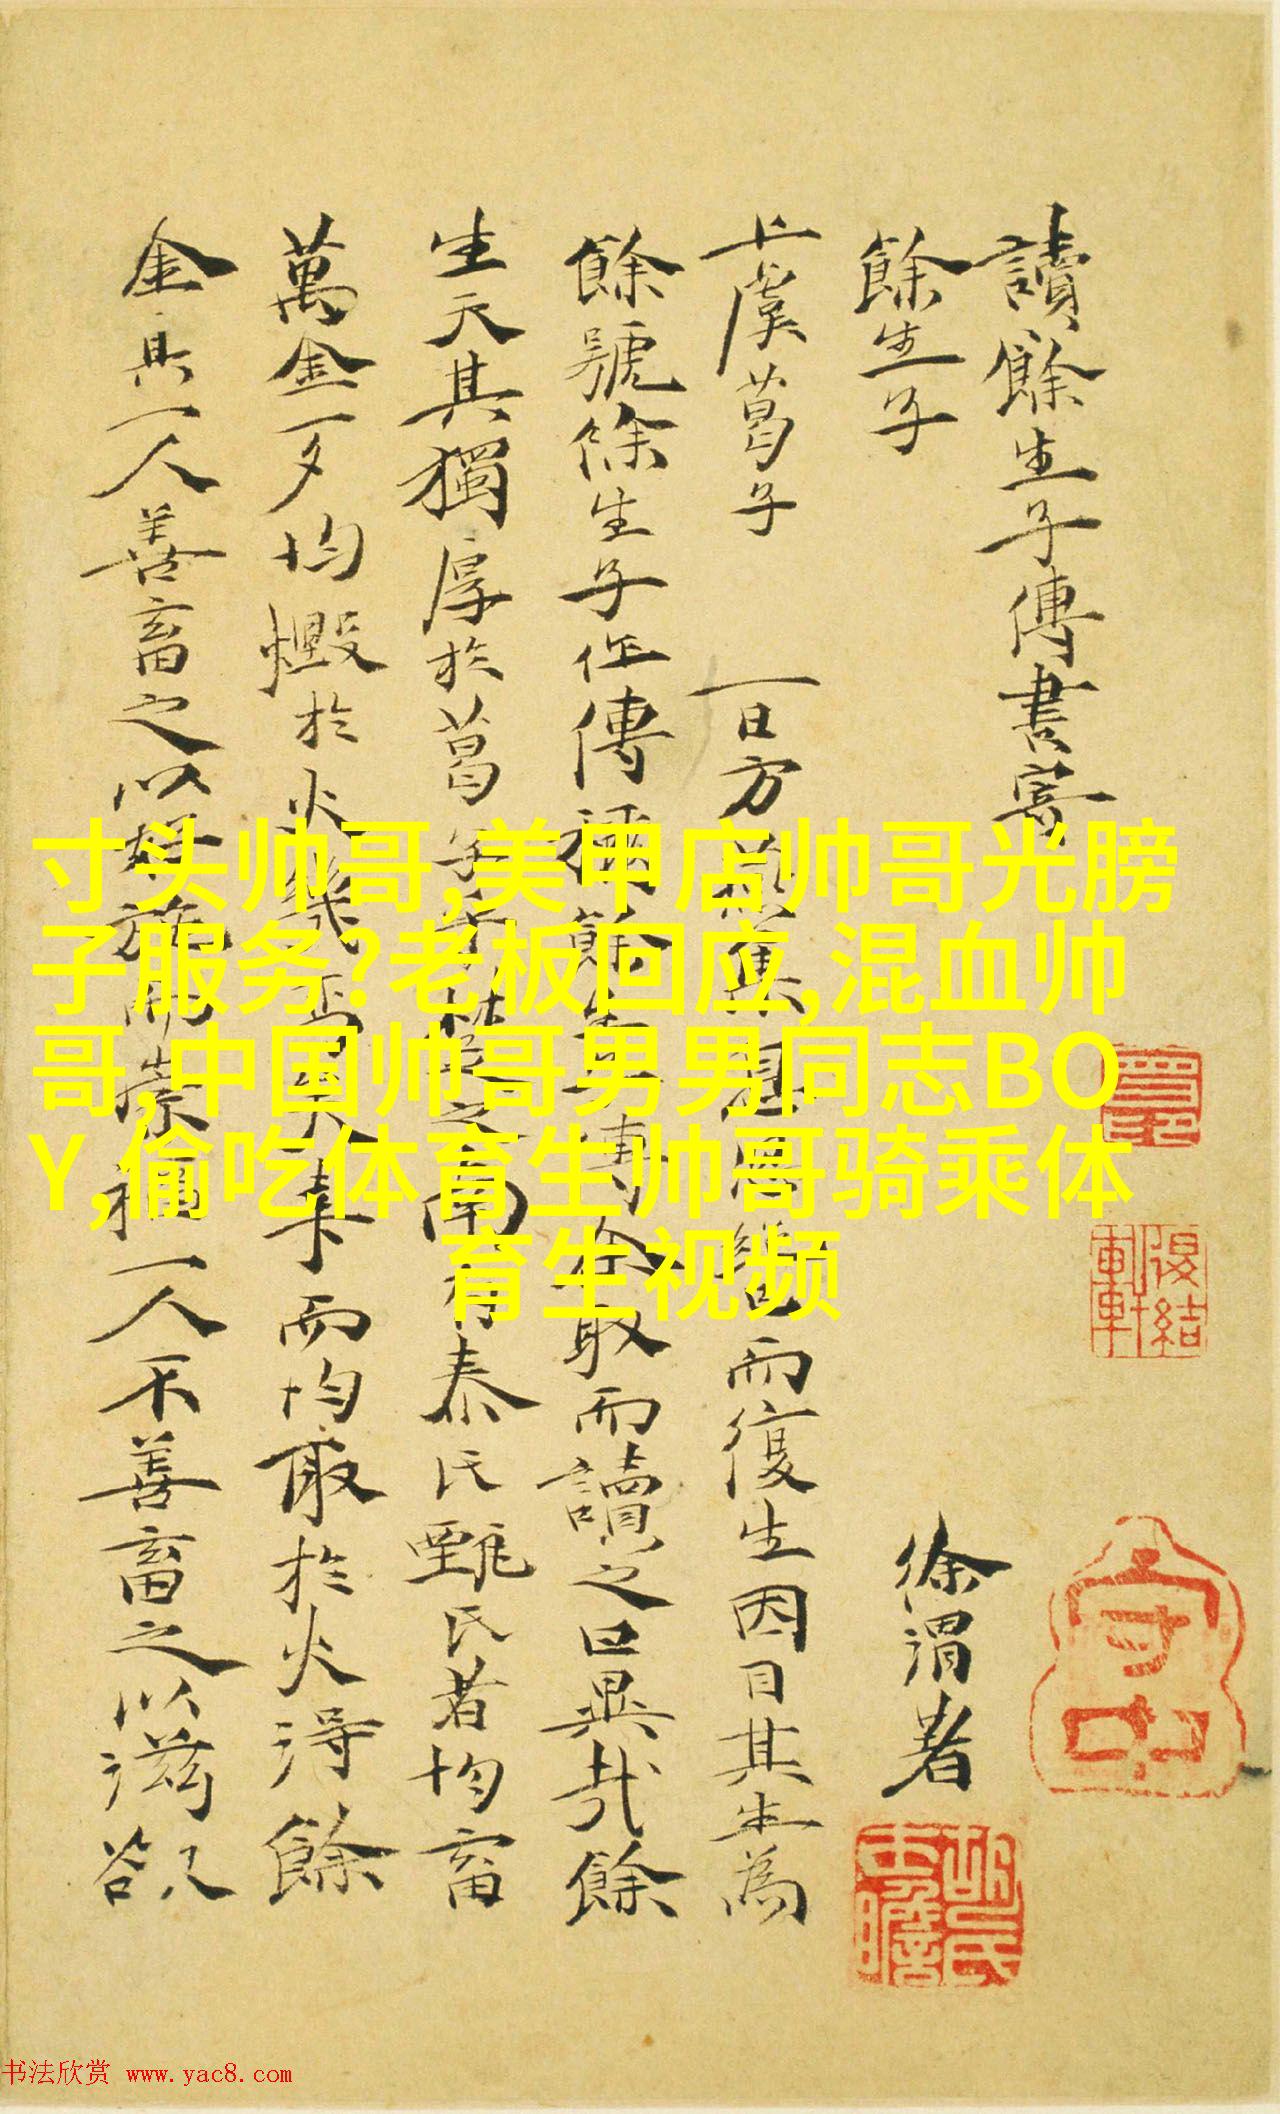 讀餘生子傳書寄
餘生子
徐渭著
上虞葛子 一日方 息 而復生因目其生為
餘號餘生子 傳 餘 取而讀之曰異哉餘
生天其獨厚於葛子乎楚之南有泰氏甄氏者均畜
萬金一夕均燬於火 而均取於火得餘
金其一人善畜之以好施而崇福一人不善畜之以滋欲
守中
寸头帅哥,美甲店帅哥光膀
子服务?老板回应,混血帅
哥,中国帅哥男男同志BO
Y,偷吃体育生帅哥骑乘体
育生视频
书法欣赏 www.yac8.com